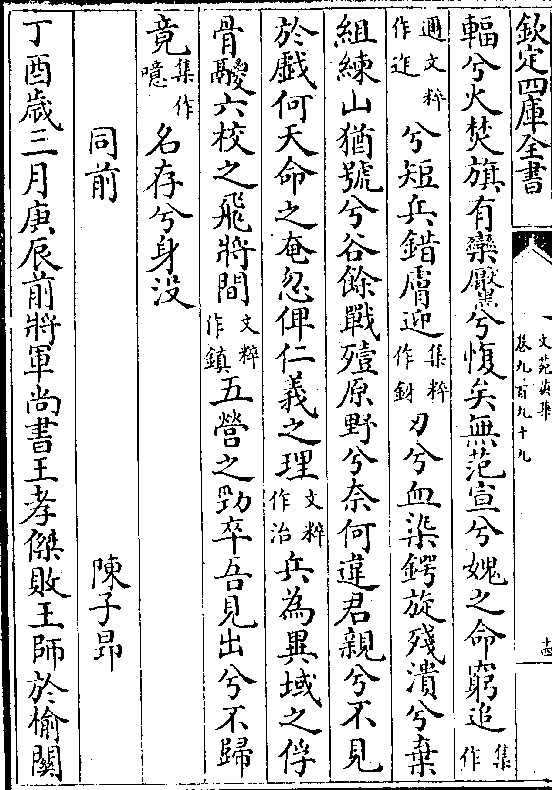 欽定四庫全書
文苑英華
卷九百九十九
十四
輻兮火焚旗有欒黶兮愎矣無范宣兮媿之命窮追集作
邇文粹作迮兮短兵錯膚迎集粹作釾刃兮血染鍔旋殘潰兮棄
組練山猶號兮谷餘戰殪原野兮奈何違君親兮不見
於戲何天命之奄忽俾仁義之理文粹作治兵為異域之俘
骨骾六校之飛將間文粹作鎮五營之勁卒吾見出兮不歸
竟集作噫名存兮身没
同前
陳子昂
丁酉歲三月庚辰前將軍尚書王孝傑敗王師於榆關